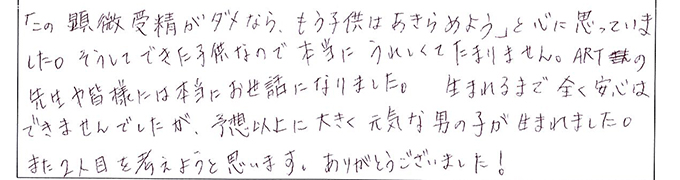 「この顕微受精がダメなら、もう子供はあきらめよう」と心に思っていま
した。そうしてできた子供なので本当にうれしくてたまりません。ARTの
先生や皆様には本当にお世話になりました。 生まれるまで全く安心は
できませんでしたが、予想以上に大きく元気な男の子が生まれました。
また2人目を考えようと思います。ありがとうございました!